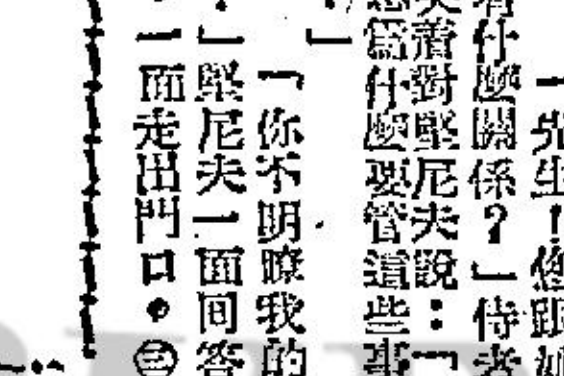 「先生！您跟她
有什麼關係？」侍者
笑着對堅尼夫說：「
您爲什麼要管這些事
？」
「你不明瞭我的
。」堅尼夫一面回答
，一面走出門口。㊂